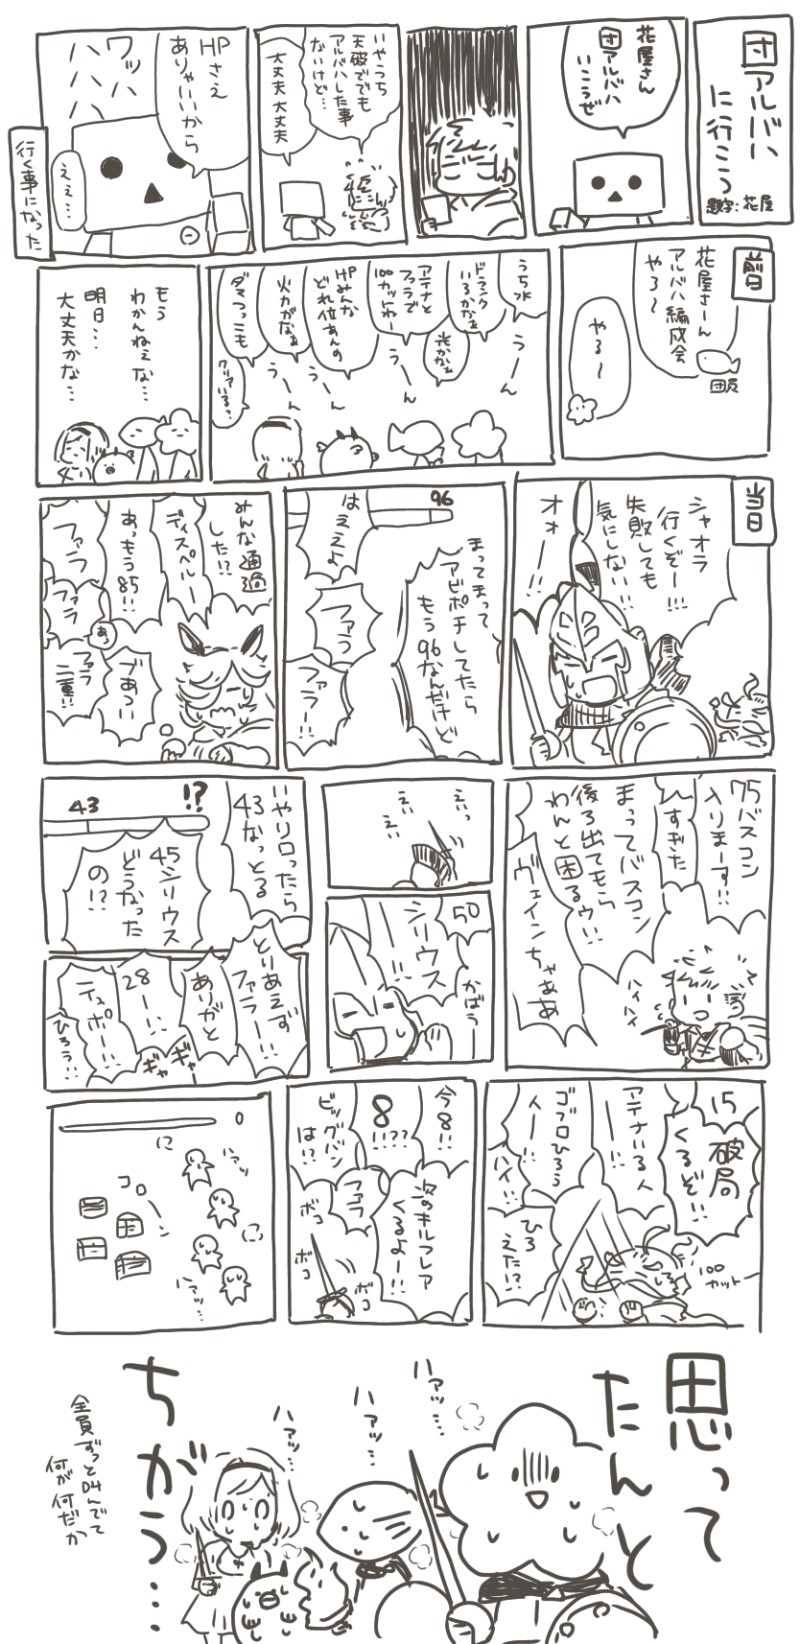 団アルバハ
に行こう
題字:花屋
花屋さん
団アルバハ
いこうぜ
いやうち
天破ででも
アルバハした事
ないけど…
大丈夫大丈夫
HPさえ
ありゃいいから
ワッハ
ハハハ
ええ…
行く事になった
前日
花屋さーん
アルバハ編成会
やろ〜
団長
やる〜
うち水
ドランク
いるかなぁ
光かなぁ
アテナと
ファラで
100カットねー
HPみんな
どれ位あんの
火力がなぁ
ダマスつっこも
クリアいる?
うーん
うーん
うーん
うーん
もう
わかんねえな…
明日…
大丈夫かな…
当日
シャオラ
行くぞー!!!
失敗しても
気にしない!!
オォ
ーー!!
96
まってまって
アビポチしてたら
もう96なんだけど
はええよ
ファラ
ファラー!!
みんな通過
した!?
ディスペルー
あっもう85!!
ファラ
ファラ
あっ
ブあつい
ファラ
二重!!
75バスコン
入りまーす!!
すぎた
まってバスコン
後ろ出てもら
わんと困るゥ!!
ヴェインちゃぁぁ
ハイハイ
えいっ
えい
えい
50
シリウス
!!
かばう
いやリロったら
43なっとる
!?
43
45シリウス
どうなった
の!?
とりあえず
ファラー!!
ありがと
28ー!!
ギャー
ギャー
テュポー!!
ひろう!!
15
破局
くるぞ!!
アテナいる人
ー!!
ゴブロひろう
人ー!!
ハイ!!
ひろ
えた!?
100
カットー
今8!!
8
!!??
ビッグバン
は!?
次のキルフレア
くるよー!!
ファラ
ボコ
ボコ
ボコ
0
ハァッ…
コローン
ハァッ…
思って
たんと
ちがう…
ハァッ…
ハァッ…
ハァッ…
全員ずっと叫んでて
何が何だか